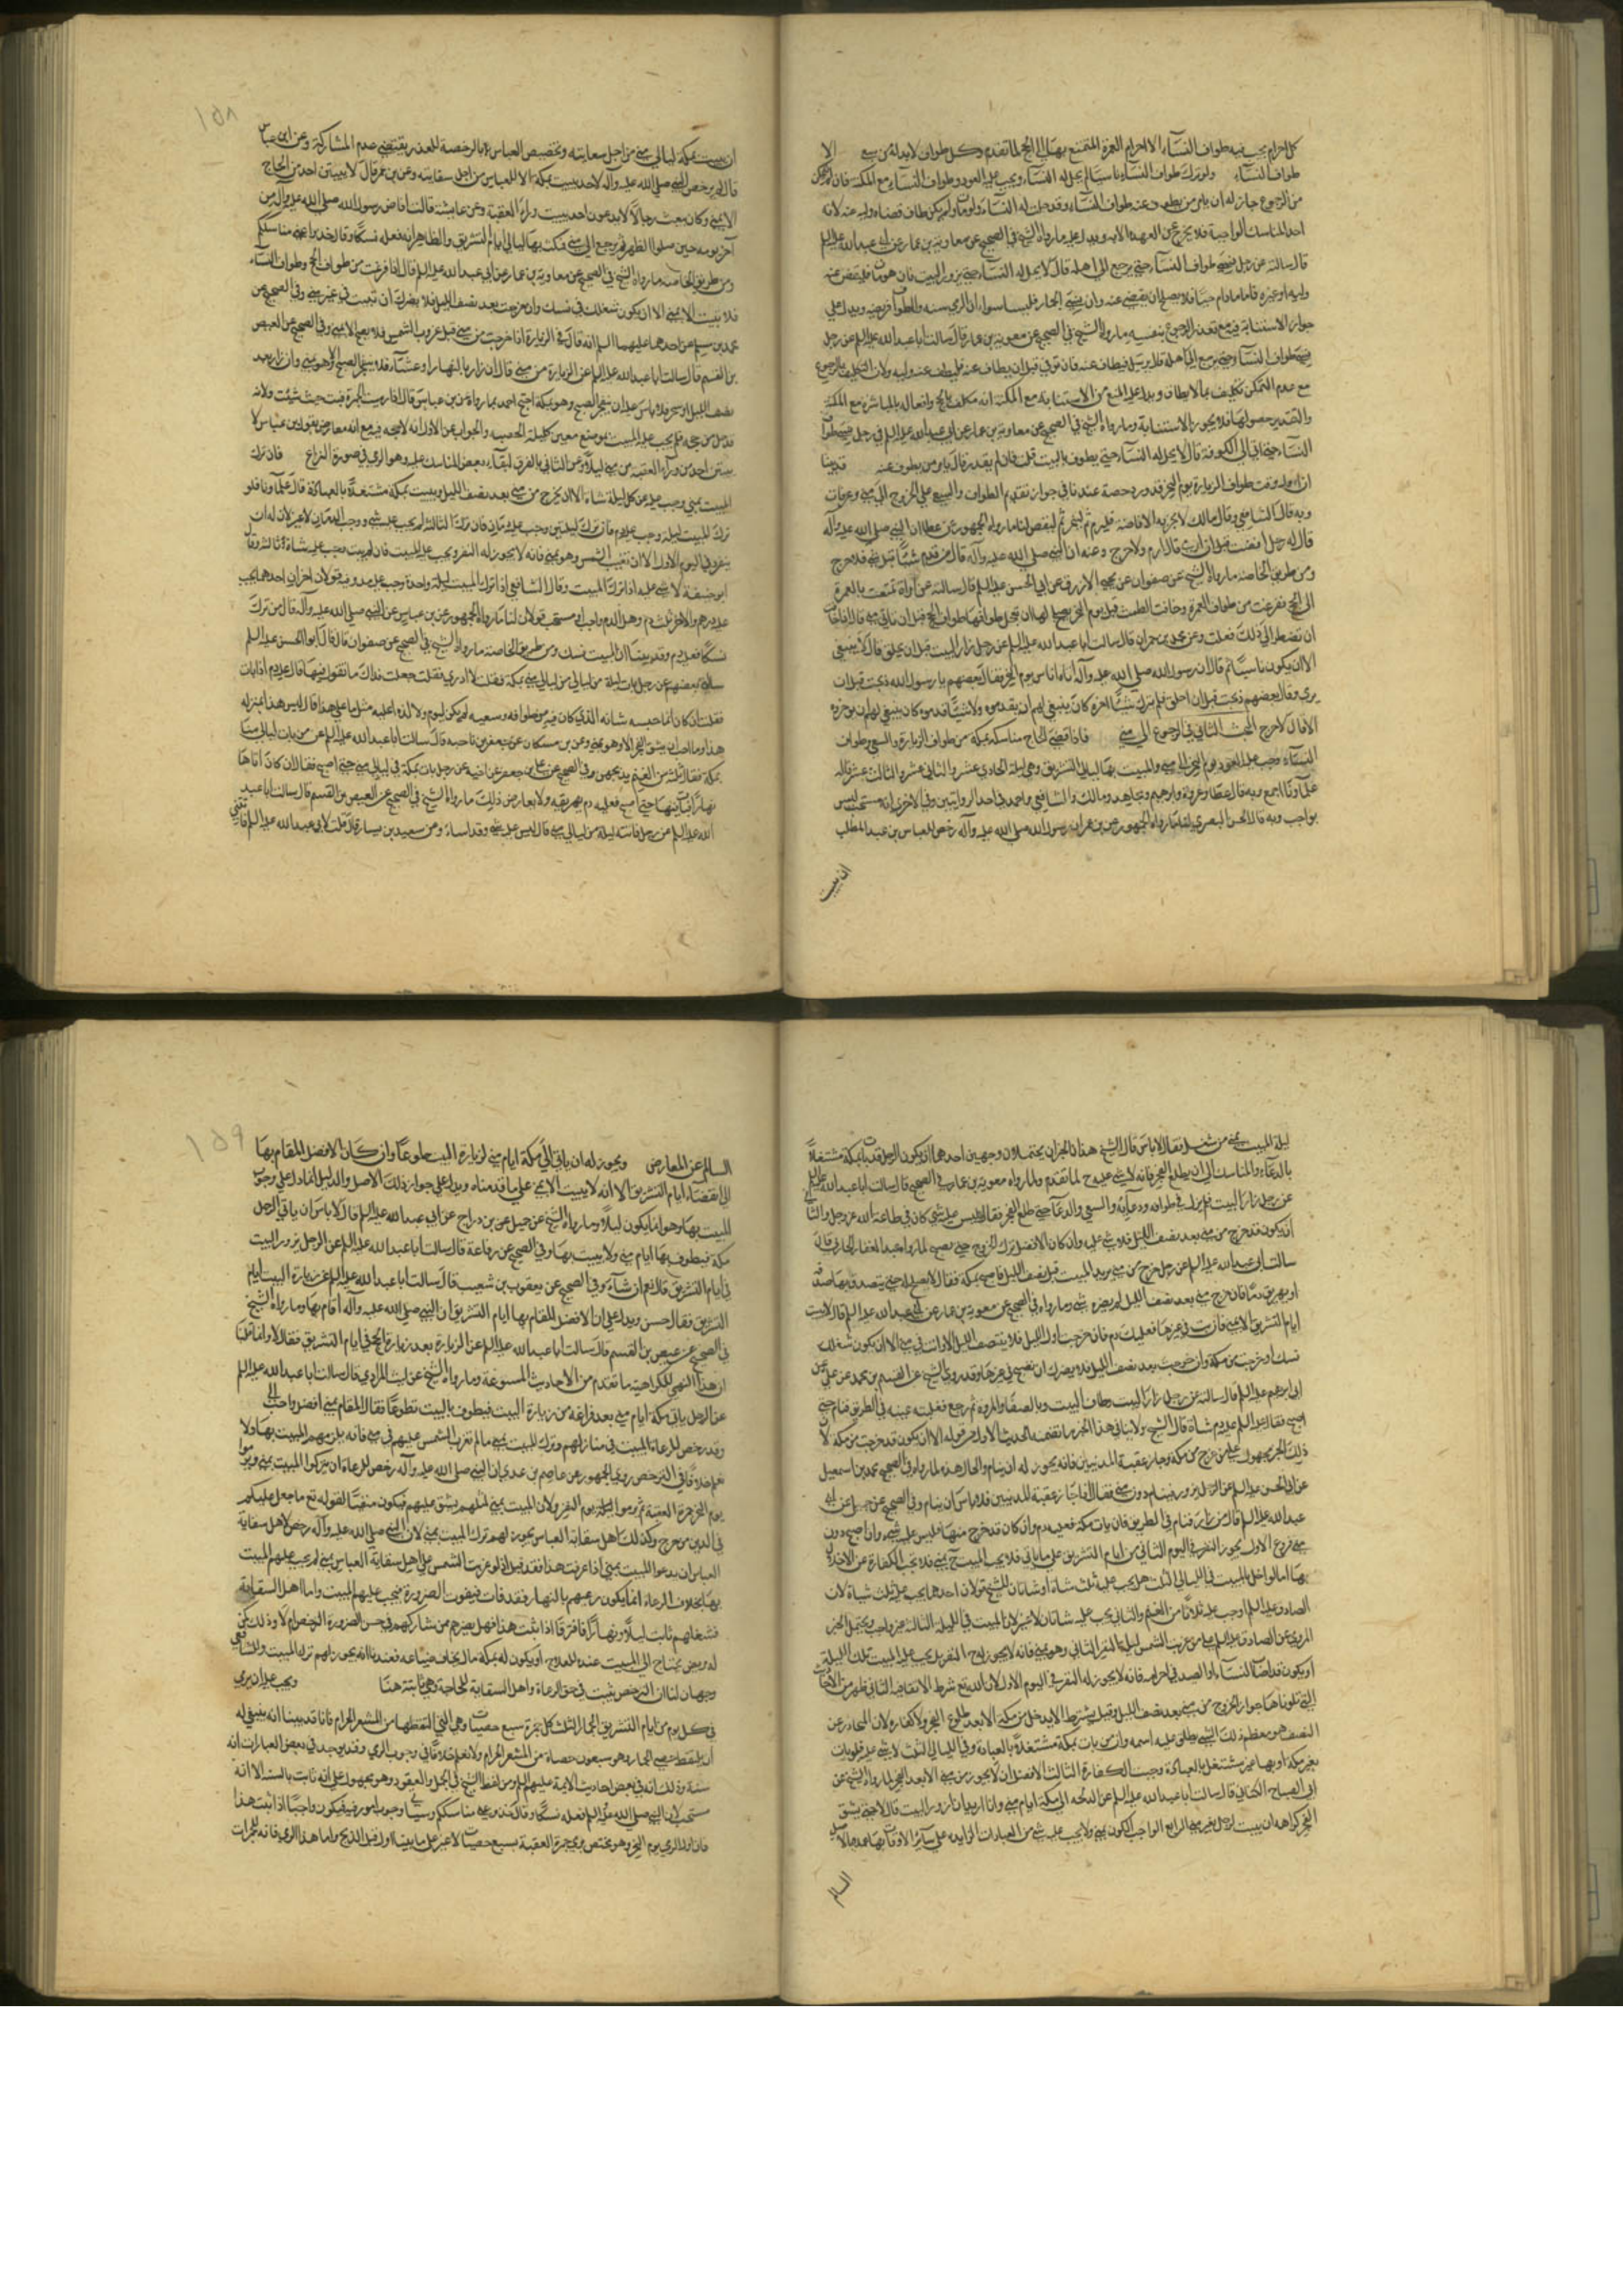 كل احرام يجب فيه طواف النسآء الا احرام العمرة المتمتع بها الى الحج لما تقدم وكل طواف لابد له من سعي الا
طواف النسآء ولو ترك طواف النسآء ناسيا لم يحل له النسآء ويجب عليه العود وطواف النسآء مع المكنة فان لم يتمكن
من الرجوع جاز له ان يامر من يطوف عنه طواف النسآء وقد حل له النسآء ولو مات ولم يكن طاف قضاه وليه عنه لانه
احد المناسك الواجبة فلا يخرج عن العهدة الا به ويدل عليه ما رواه الشيخ في الصحيح عن معاوية بن عمار عن ابي عبد الله عليه السلم
قال سالته عن رجل نسي طواف النسآء حتى يرجع الى اهله قال لا يحل له النسآء حتى يزور البيت فان هو مات فليقض عنه
وليه او غيره فاما مادام حيا فلا يصلح ان يقضي عنه وان نسي الجمار فليسا سواء ان الرمي سنه والطواف فريضه ويدل على
جواز الاستنابة فيه مع تعذر الرجوع بنفسه ما رواه الشيخ في الصحيح عن معوية بن عمار قال سالت ابا عبد الله عليه السلم عن رجل
نسي طواف النسآء حتى يرجع الى اهله قال يرسل فيطاف عنه فان توفي قبل ان يطاف عنه فليطف عنه وليه ولان التكليف بالرجوع
مع عدم التمكن تكليف بما لا يطاق ويدل على المنع من الاستنابة مع المكنة انه مكلف بالحج وافعاله بالمباشرة مع المكنة
والتقدير حصولها فلا يجوز الاستنابة وما رواه الشيخ في الصحيح عن معاوية بن عمار عن ابي عبد الله عليه السلم في رجل نسي طواف
النسآء حتى اتى الكوفة قال لا يحل له النسآء حتى يطوف بالبيت قلت فان لم يقدر قال يامر من يطوف عنه قد بينا
ان اول وقت طواف الزيارة يوم النحر وقد ورد رخصة عندنا في جواز تقديم الطواف والسعي على الخروج الى منى وعرفات
وبه قال الشافعي وقال مالك لا يجزيه الافاضة فليرم ثم لينحر ثم ليفض لنا ما رواه الجمهور عن عطا ان النبي صلى الله عليه وآله
قال له رجل افضت قبل ان ارمي قال ارم ولا حرج وعنه ان النبي صلى الله عليه وآله قال من قدم شيئا قبل شي فلا حرج
ومن طريق الخاصة ما رواه الشيخ عن صفوان عن يحيى الازرق عن ابي الحسن عليه السلم قال سالته عن امراة تمتعت بالعمرة
الى الحج ففرغت من طواف العمرة وخافت الطمث قبل يوم النحر يصلح لها ان تعجل طوافها طواف الحج قبل ان تاتي منى قال اذا خافت
ان تضطر الى ذلك فعلت وعن محمد بن حمران قال سالت ابا عبد الله عليه السلم عن رجل زار البيت قبل ان يحلق قال لا ينبغي
الا ان يكون ناسيا ثم قال ان رسول الله صلى الله عليه وآله اتاه اناس يوم النحر فقال بعضهم يا رسول الله ذبحت قبل ان
يرمي وقال بعضهم ذبحت قبل ان احلق فلم يترك شيئا اخره كان ينبغي لهم ان يقدموه ولا شيئا قدموه كان ينبغي لهم ان يوخروه
الا قال لا حرج البحث الثاني في الرجوع الى منى فاذا قضى الحاج مناسكه بمكة من طواف الزيارة والسعي وطواف
النسآء وجب عليه العود يوم النحر الى منى والمبيت بها ليالي التشريق وهي ليلة الحادي عشر والثاني عشر والثالث عشر قاله
علماونا اجمع وبه قال عطا وعروة وابرهيم ومجاهد ومالك والشافعي واحمد في احد الروايتين وفي الاخرى انه مستحب ليس
بواجب وبه قال الحسن البصري لنا ما رواه الجمهور عن بن عمر ان رسول الله صلى الله عليه وآله رخص للعباس بن عبد المطلب
ان يبيت
١٥٨
ان يبيت بمكة ليالي منى من اجل سقايته وتخصيص العباس بالرخصة للعذر يقتضي عدم المشاركة وعن ابن عباس
قال لم يرخص النبي صلى الله عليه وآله لاحد يبيت بمكة الا للعباس من اجل سقايته وعن بن عمر قال لا يبيتن احد من الحاج
الا بمنى وكان يبعث رجالا لا يدعون احدا يبيت ورآء العقبة وعن عايشة قالت افاض رسول الله صلى الله عليه وآله من
آخر يومه حين صلوا الظهر ثم رجع الى منى فمكث بها ليالي ايام التشريق والظاهر انه فعله نسكا وقال خذوا عني مناسككم
ومن طريق الخاصة ما رواه الشيخ في الصحيح عن معاوية بن عمار عن ابي عبد الله عليه السلم قال اذا فرغت من طواف الحج وطواف النسآء
فلا تبيت الا بمنى الا ان يكون شغلك في نسك وان خرجت بعد نصف الليل فلا يضرك ان تبيت في غير منى وفي الصحيح عن
محمد بن مسلم عن احدهما عليهما السلم انه قال في الزيارة اذا خرجت من منى قبل غروب الشمس فلا تصبح الا بمنى وفي الصحيح عن العيص
بن القسم قال سالت ابا عبد الله عليه السلم عن الزيارة من منى قال ان زار بالنهار او عشآء فلا ينفجر الصبح الا وهو بمنى وان زار بعد
نصف الليل او سحر فلا باس عليه ان ينفجر الصبح وهو بمكة احتج احمد بما رواه عن بن عباس قال اذا رميت الجمرة فبت حيث شئت ولانه
قد حل من حجه فلم يجب عليه المبيت بموضع معين كليلة الحصبه والجواب عن الاول انه لا حجه فيه مع انه معارض بقول بن عباس لا
يبيتن احد من ورآء العقبه من منى ليلا وعن الثاني بالفرق لبقآء بعض المناسك عليه وهو الرمي في صورة النزاع فان ترك
المبيت بمنى وجب عليه عن كل ليلة شاة الا ان يخرج من منى بعد نصف الليل او يبيت بمكة مشتغلا بالعبادة قال علماونا فلو
ترك المبيت ليلة وجب عليه دم فان ترك ليلتين وجب عليه دمان فان ترك الثالثة لم يجب عليه شي ووجب الدمان لا غير لان له ان
ينفر في اليوم الاول الا ان تغيب الشمس وهو بمنى فانه لا يجوز له النفر ويجب عليه المبيت فان لم يبت وجب عليه شاة ثالثه وقال
ابو حنيفة لا شي عليه اذا ترك المبيت وقال الشافعي اذا ترك المبيت ليلة واحدة وجب عليه مد وفيه قولان اخران احدهما يجب
عليه درهم والاخر ثلث دم وهل الدم واجب او مستحب قولان لنا ما رواه الجمهور عن بن عباس عن النبي صلى الله عليه وآله قال من ترك
نسكا فعليه دم وقد بينا ان المبيت نسك ومن طريق الخاصة ما رواه الشيخ في الصحيح عن صفوان قال قال ابو الحسن عليه السلم
سالني بعضهم عن رجل بات ليلة من ليالي منى بمكة فقلت لا ادري فقلت جعلت فداك ما تقول فيها قال عليه دم اذا بات
فقلت ان كان انما حبسه شانه الذي كان فيه من طوافه وسعيه لم يكن لنوم ولا لذة اعليه مثل ما على هذا قال ليس هذا بمنزلة
هذا وما احب ان ينشق الفجر الا وهو بمنى وعن بن مسكان عن جعفر بن ناجيه قال سالت ابا عبد الله عليه السلم عن من بات ليالي منى
بمكة فقال ثلثة من الغنم يذبحهن وفي الصحيح عن علي بن جعفر عن اخيه عن رجل بات بمكة في ليالي منى حتى اصبح فقال ان كان اتاها
نهارا فبات فيها حتى اصبح فعليه دم يهريقه ولا يعارض ذلك ما رواه الشيخ في الصحيح عن العيص بن القسم قال سالت ابا عبد
الله عليه السلم عن رجل فاتته ليلة من ليالي منى قال ليس عليه شي وقد اساء وعن سعيد بن يسار قال قلت لابي عبد الله عليه السلم فاتتني
ليلة المبيت بمنى من شغل فقال لا باس قال الشيخ هذان الخبران يحتملان وجهين احدهما ان يكون الرجل قد بات بمكة مشتغلا
بالدعآء والمناسك الى ان يطلع الفجر فانه لا شي عليه ح لما تقدم ولما رواه معوية بن عمار في الصحيح قال سالت ابا عبد الله عليه السلم
عن رجل زار البيت فلم يزل في طوافه ودعآيه والسعي والدعآ حتى طلع الفجر فقال ليس عليه شي كان في طاعة الله عز وجل والثاني
ان يكون قد خرج من منى بعد نصف الليل فلا شي عليه وان كان الافضل ترك الخروج حتى يصبح لما رواه عبد الغفار الجازي قال
سالت ابي عبد الله عليه السلم عن رجل خرج من منى يريد المبيت قبل نصف الليل فاصبح بمكة فقال لا يصلح له حتى يتصدق بها صدقه
او يهريق دما فان خرج من منى بعد نصف الليل لم يضره شي وما رواه في الصحيح عن معوية بن عمار عن ابي عبد الله عليه السلم قال لا تبت
ايام التشريق الا بمنى فان بت في غيرها فعليك دم فان خرجت اول الليل فلا ينتصف الليل الا وانت في منى الا ان يكون شغلك
نسك او خرجت من مكة وان خرجت بعد نصف الليل فلا يضرك ان تصبح في غيرها وقد روى الشيخ عن القسم بن محمد عن علي عن
ابي ابرهيم عليه السلم قال سالته عن رجل زار البيت وطاف البيت وبالصفا والمروة ثم رجع فغلبته عينه في الطريق فنام حتى
اصبح فقال عليه السلم عليه دم شاة قال الشيخ ولا ينافي هذا الخبر ما تضمنه الحديث الاول من قوله الا ان يكون قد خرجت من مكة لان
ذلك الخبر محمول على من خرج من مكة وجاز عقبة المدنيين فانه يجوز له ان ينام والحال هذه لما رواه في الصحيح عن محمد بن اسمعيل
عن ابي الحسن عليه السلم عن الرجل يزور فينام دون منى فقال اذا جاز عقبة المدنيين فلا باس ان ينام وفي الصحيح عن جميل عن ابي
عبد الله عليه السلم قال من زار فنام في الطريق فان بات بمكة فعليه دم وان كان قد خرج منها فليس عليه شي وان اصبح دون
منى فروع الاول يجوز النفر في اليوم الثاني من ايام التشريق على ما ياتي فلا يجب المبيت ح بمنى فلا تجب الكفارة عن الاخلال
بها اما لو اخل بالمبيت في الليالي الثلث هل يجب عليه ثلث شياة او شاتان للشيخ قولان احدهما يجب عليه ثلث شياة لان
الصادق عليه السلم اوجب عليه ثلاثا من الغنم والثاني يجب عليه شاتان لا غير لان المبيت في الليلة الثالثة غير واجب ويحتمل الخبر
المروي عن الصادق عليه السلم على من غربت الشمس ليلة النفر الثاني وهو بمنى فانه لا يجوز له ح النفر بل يجب عليه المبيت تلك الليلة
او يكون قد اصاب النسآء او الصيد في احرامه فانه لا يجوز له النفر في اليوم الاول لان الله تع شرط الاتقا فيه الثاني ظهر من الاحاديث
التي تلوناها جواز الخروج من منى بعد نصف الليل وقيل بشرط الا يدخل من مكة الا بعد طلوع الفجر ولا كفارة لان المتجاوز عن
النصف هو معظم ذلك الشي يطلق عليه اسمه وان من بات بمكة مشتغلا بالعبادة وفي الليالي الثلث لا شي عليه فلو بات
بغير مكة او بها غير مشتغل بالعبادة وجبت الكفارة الثالث الافضل ان لا يخرج من منى الا بعد الفجر لما رواه الشيخ عن
ابي الصباح الكناني قال سالت ابا عبد الله عليه السلم عن الدلجه الى مكة ايام منى وانا اريد ان ازور البيت قال لا حتى ينشق
الفجر كراهة ان يبيت الرجل بغير منى الرابع الواجب الكون بمنى ولا يجب عليه شي من العبادات الزايده على سآير الاوقات بها عملا بالاصل
السالم
١٥٩
السالم عن المعارض ويجوز له ان ياتي الى مكة ايام منى لزيارة البيت طوعا وان كان الافضل المقام بها
الى انقضآء ايام التشريق الا انه لا يبيت الا بمنى على ما قدمناه ويدل على جواز ذلك الاصل والدليل انما دل على وجوب
المبيت بها وهو انما يكون ليلا وما رواه الشيخ عن جميل عن بن دراج عن ابي عبد الله عليه السلم قال لا باس ان ياتي الرجل
مكة فيطوف بها ايام منى ولا يبيت بها وفي الصحيح عن رفاعة قال سالت ابا عبد الله عليه السلم عن الرجل يزور البيت
في ايام التشريق قال نعم ان شآء وفي الصحيح عن يعقوب بن شعيب قال سالت ابا عبد الله عليه السلم عن زيارة البيت ايام
التشريق فقال حسن ويدل على ان الافضل المقام بها ايام التشريق ان النبي صلى الله عليه وآله اقام بها وما رواه الشيخ
في الصحيح عن عيص بن القسم قال سالت ابا عبد الله عليه السلم عن الزيارة بعد زيارة الحج في ايام التشريق فقال لا وانما قلنا
ان هذا النهي للكراهية ما تقدم من الاحاديث المسوغة وما رواه الشيخ عن ليث المرادي قال سالت ابا عبد الله عليه السلم
عن الرجل ياتي مكة ايام منى بعد فراغه من زيارة البيت فيطوف بالبيت تطوعا فقال المقام بمنى افضل واحب الي
وقد رخص للرعاة المبيت في منازلهم وترك المبيت بمنى ما لم تغرب الشمس عليهم في منى فانه يلزمهم المبيت بها ولا
نعلم خلافا في الترخص روى الجمهور عن عاصم بن عدي ان النبي صلى الله عليه وآله رخص للرعاة ان يتركوا المبيت بمنى ويرموا
يوم النحر جمرة العقبة ثم يرموا ليلة يوم النفر ولان المبيت بمنى لمثلهم يشق عليهم فيكون منفيا لقوله تع ما جعل عليكم
في الدين من حرج وكذلك اهل سقاية العباس يجوز لهم ترك المبيت بمنى لان النبي صلى الله عليه وآله رخص لاهل سقاية
العباس ان يدعوا المبيت بمنى اذا عرفت هذا فقد قيل انه لو غربت الشمس على اهل سقاية العباس بمنى لم يجب عليهم المبيت
بها بخلاف الرعاة انما يكون رعيهم بالنهار وقد فات فيفوت الضرورة فيجب عليهم المبيت واما اهل السقاية
فشغلهم ثابت ليلا ونهارا فافترقا اذا ثبت هذا فهل يضر من شاركهم في حسن الضرورة الترخص ام لا وذلك كمن
له مريض يحتاج الى المبيت عنده للعلاج او يكون له بمكة مال يخاف ضياعه فعندنا انه يجوز لهم ترك المبيت وللشافعي
وجهان لنا ان الترخص يثبت في حق الرعاة واهل السقاية للحاجة وهي ثابتة هنا ويجب عليه ان يرمي
في كل يوم من ايام التشريق الجمار الثلث كل جمرة سبع حصيات وهي التي التقطها من المشعر الحرام فانا قد بينا انه ينبغي له
ان يلتقط حصى الجمار وهو سبعون حصاة من المشعر الحرام ولا نعلم خلافا في وجوب الرمي وقد يوجد في بعض العبارات انه
سنة وذلك انه في بعض احاديث الايمة عليهم السلم ومن لفظ الشيخ في الجمل والعقود وهو محمول على انه ثابت بالسنة لا انه
مستحب لان النبي صلى الله عليه وآله فعله نسكا وقال خذوا عني مناسككم وسياتي وجوب امور فيه فيكون واجبا اذا ثبت هذا
فان اول الرمي يوم النحر وهو مختص برمي جمرة العقبة بسبع حصيات لا غير على ما بينا اول قبل الذبح واما هذا الرمي فانه للجمرات